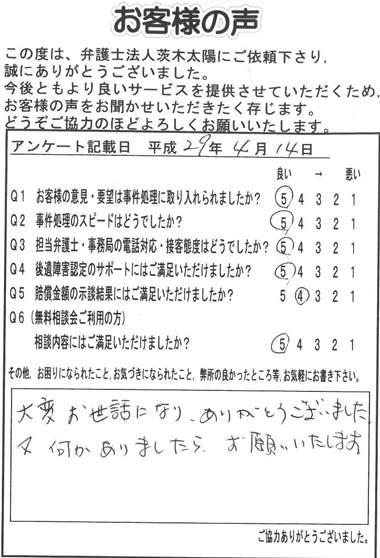 お客様の声
この度は、弁護士法人茨木太陽にご依頼下さり,
誠にありがとうございました。
今後ともより良いサービスを提供させていただくため,
お客様の声をお聞かせいただきたく存じます。
どうぞご協力のほどよろしくお願いいたします。
アンケート記載日 平成 29年 4月 14日
良い → 悪い
Q1 お客様の意見・要望は事件処理に取り入れられましたか? 5 4 3 2 1
Q2 事件処理のスピードはどうでしたか? 5 4 3 2 1
Q3 担当弁護士・事務局の電話対応・接客態度はどうでしたか? 5 4 3 2 1
Q4 後遺障害認定のサポートにはご満足いただけましたか? 5 4 3 2 1
Q5 賠償金額の示談結果にはご満足いただけましたか? 5 4 3 2 1
Q6 (無料相談会ご利用の方)
相談内容にはご満足いただけましたか? 5 4 3 2 1
その他, お困りになられたこと, お気づきになられたこと, 弊所の良かったところ等, お気軽にお書き下さい。
大変お世話になり、ありがとうございました
又何かありましたら、お願いいたします
ご協力ありがとうございました。